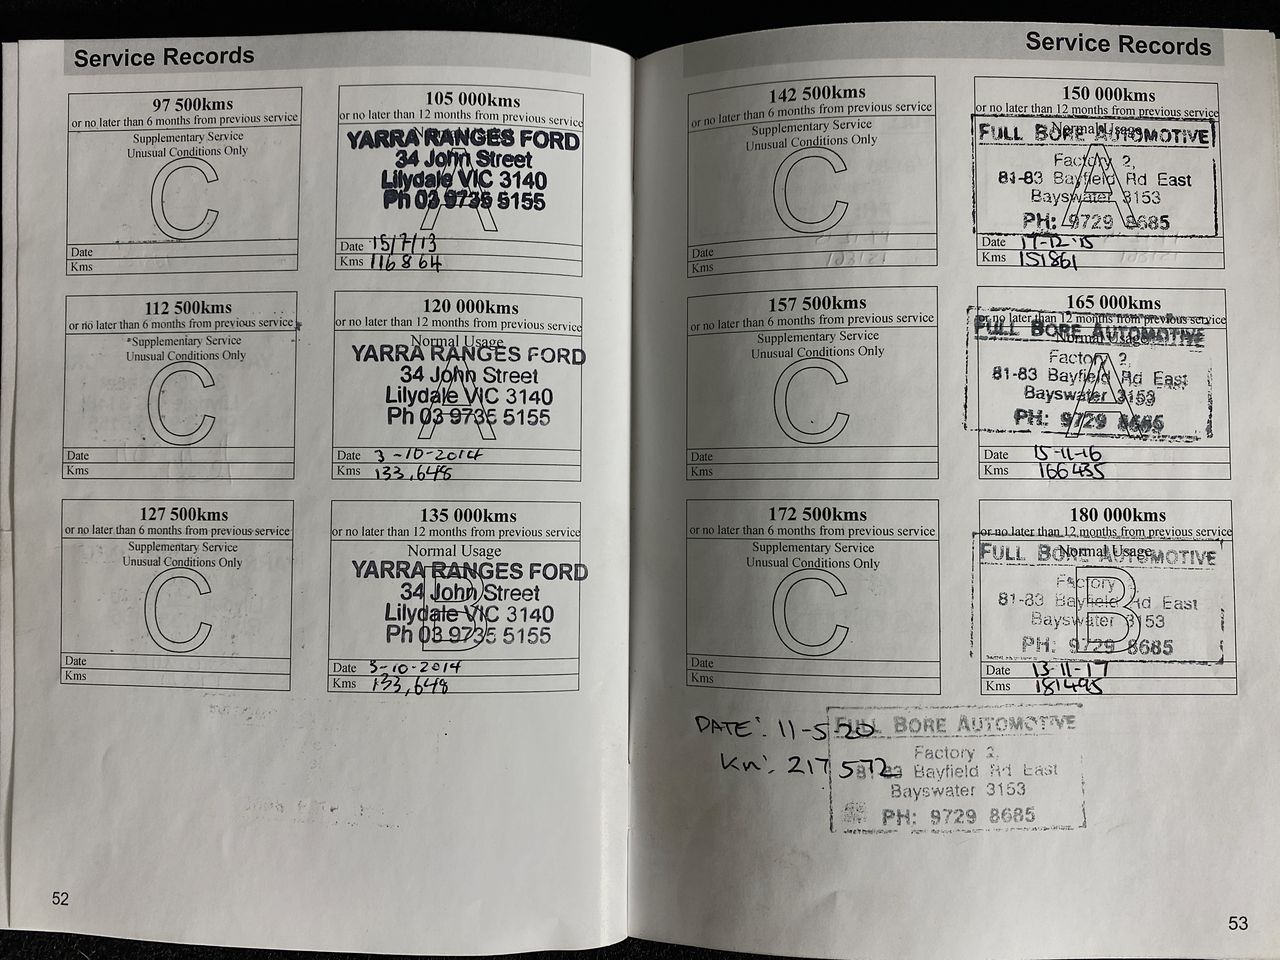 Service Records
97 500kms
or no later than 6 months from previous service
Supplementary Service
Unusual Conditions Only
C
Date
Kms
105 000kms
or no later than 12 months from previous service
YARRA RANGES FORD
34 John Street
Lilydale VIC 3140
Ph 03 9735 5155
A
Date 15/7/13
Kms 116864
112 500kms
or no later than 6 months from previous service
*Supplementary Service
Unusual Conditions Only
C
Date
Kms
120 000kms
or no later than 12 months from previous service
Normal Usage
YARRA RANGES FORD
34 John Street
Lilydale VIC 3140
Ph 03 9735 5155
A
Date 3-10-2014
Kms 133,648
127 500kms
or no later than 6 months from previous service
Supplementary Service
Unusual Conditions Only
C
Date
Kms
135 000kms
or no later than 12 months from previous service
Normal Usage
YARRA RANGES FORD
34 John Street
Lilydale VIC 3140
Ph 03 9735 5155
B
Date 3-10-2014
Kms 133,648
52
Service Records
142 500kms
or no later than 6 months from previous service
Supplementary Service
Unusual Conditions Only
C
Date
Kms
150 000kms
or no later than 12 months from previous service
Normal Usage
FULL BORE AUTOMOTIVE
Factory 2,
81-83 Bayfield Rd East
Bayswater 3153
PH: 9729 8685
A
Date 17-12-15
Kms 151861
157 500kms
or no later than 6 months from previous service
Supplementary Service
Unusual Conditions Only
C
Date
Kms
165 000kms
or no later than 12 months from previous service
Normal Usage
FULL BORE AUTOMOTIVE
Factory 2,
81-83 Bayfield Rd East
Bayswater 3153
PH: 9729 8685
A
Date 15-11-16
Kms 166435
172 500kms
or no later than 6 months from previous service
Supplementary Service
Unusual Conditions Only
C
Date
Kms
180 000kms
or no later than 12 months from previous service
Normal Usage
FULL BORE AUTOMOTIVE
Factory
81-83 Bayfield Rd East
Bayswater 3153
PH: 9729 8685
B
Date 13-11-17
Kms 181495
DATE: 11-5-20
Km: 217572
FULL BORE AUTOMOTIVE
Factory 2,
81-83 Bayfield Rd East
Bayswater 3153
PH: 9729 8685
53